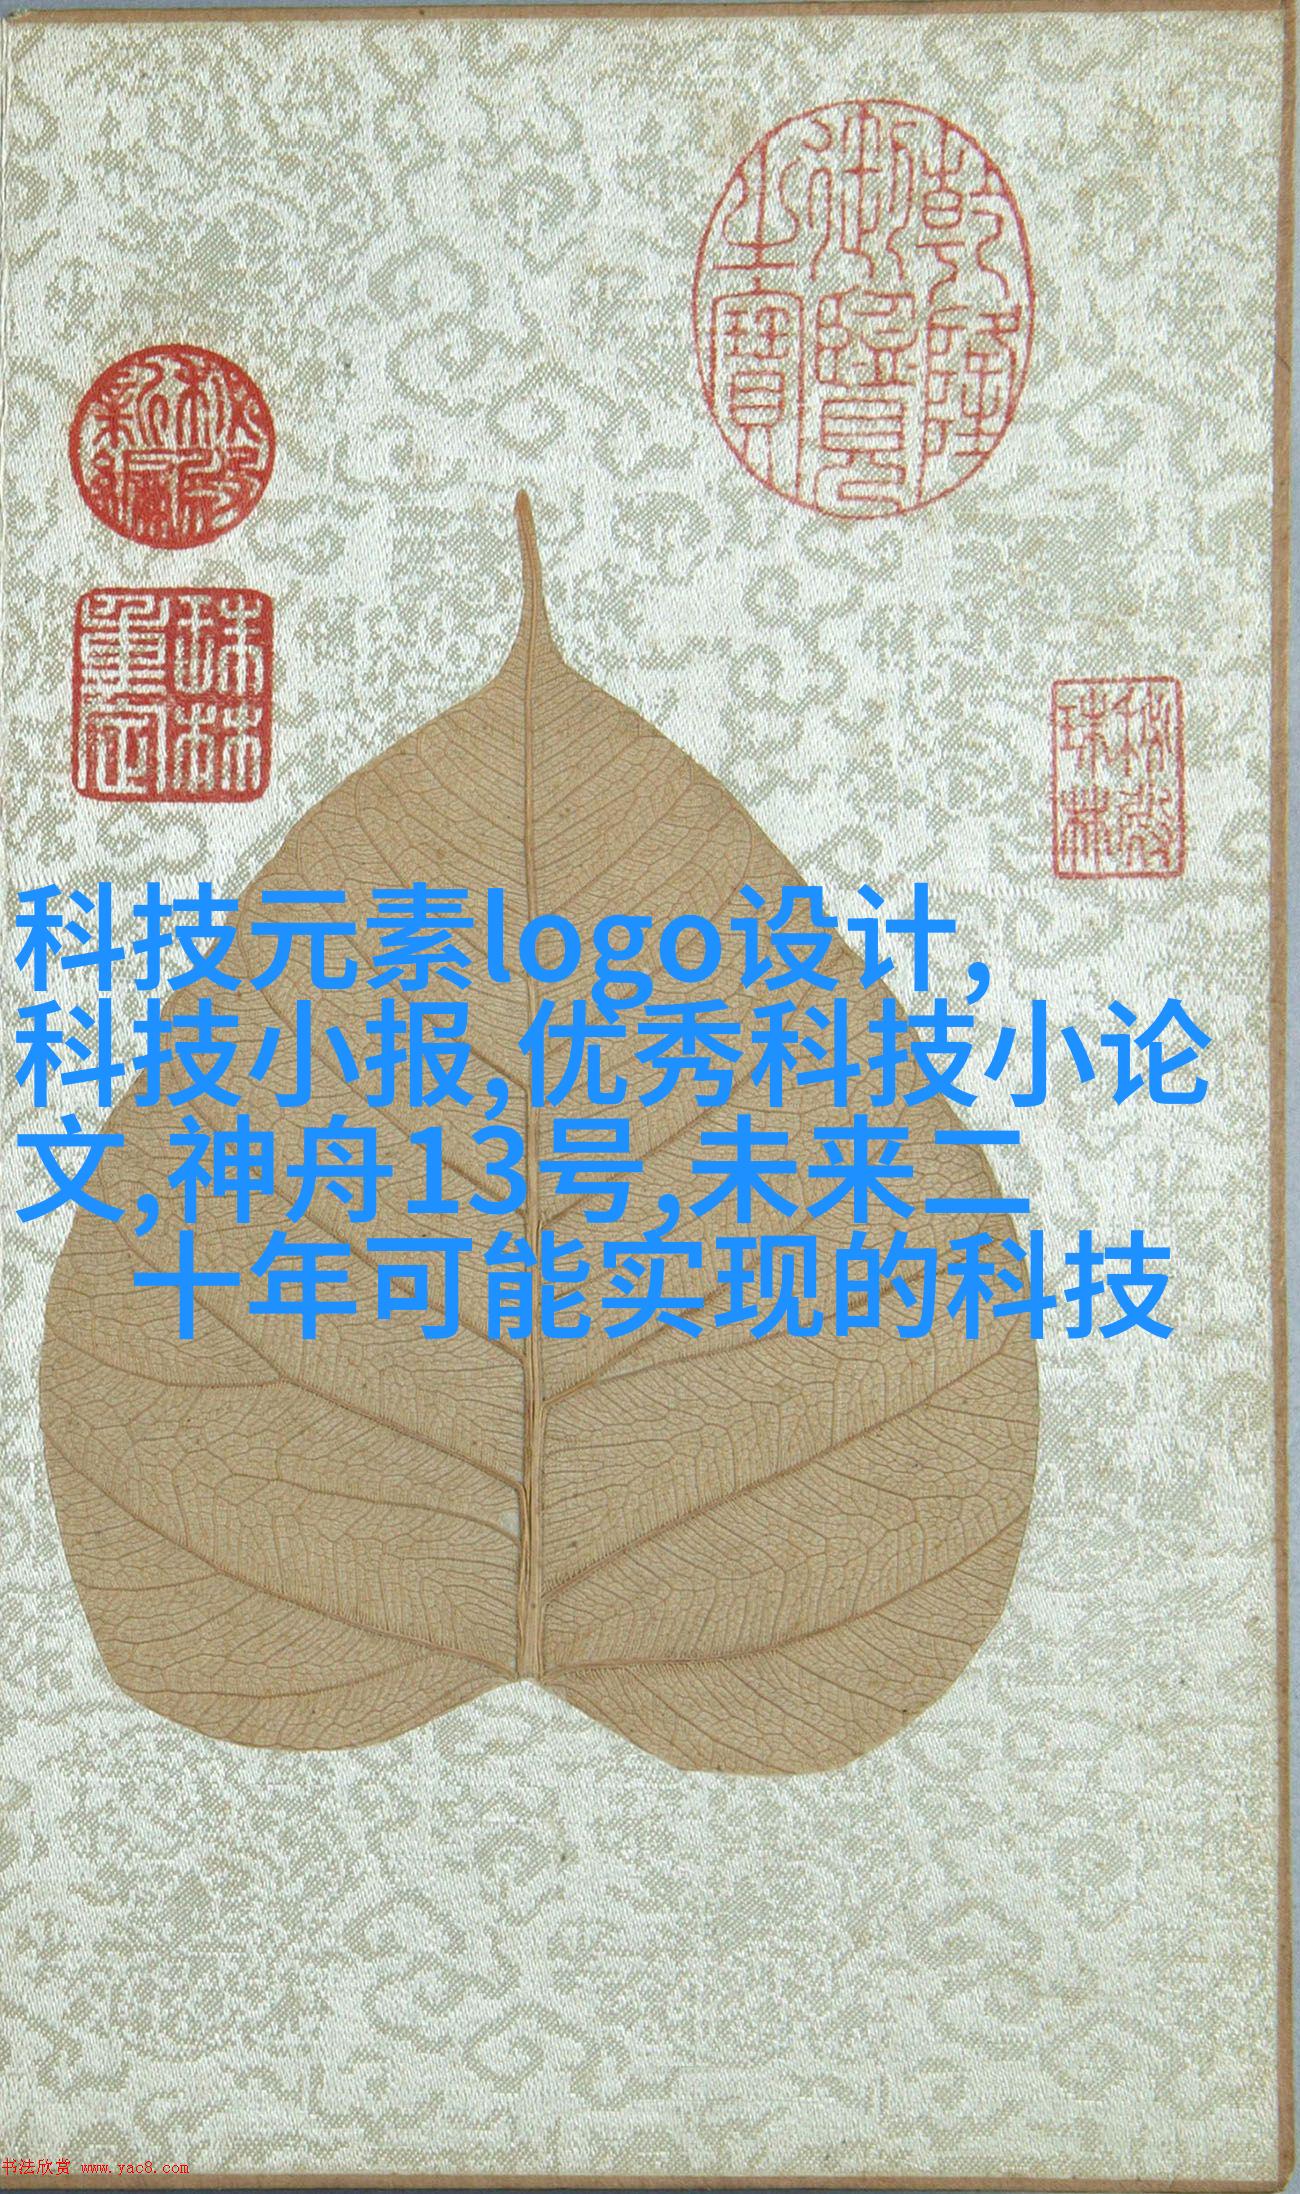 乾隆
御覽
之寶
秘殿
新編
珠林
重定
秘殿
珠林
科技元素logo设计,
科技小报,优秀科技小论
文,神舟13号,未来二
十年可能实现的科技
书法欣赏 www.yac8.com